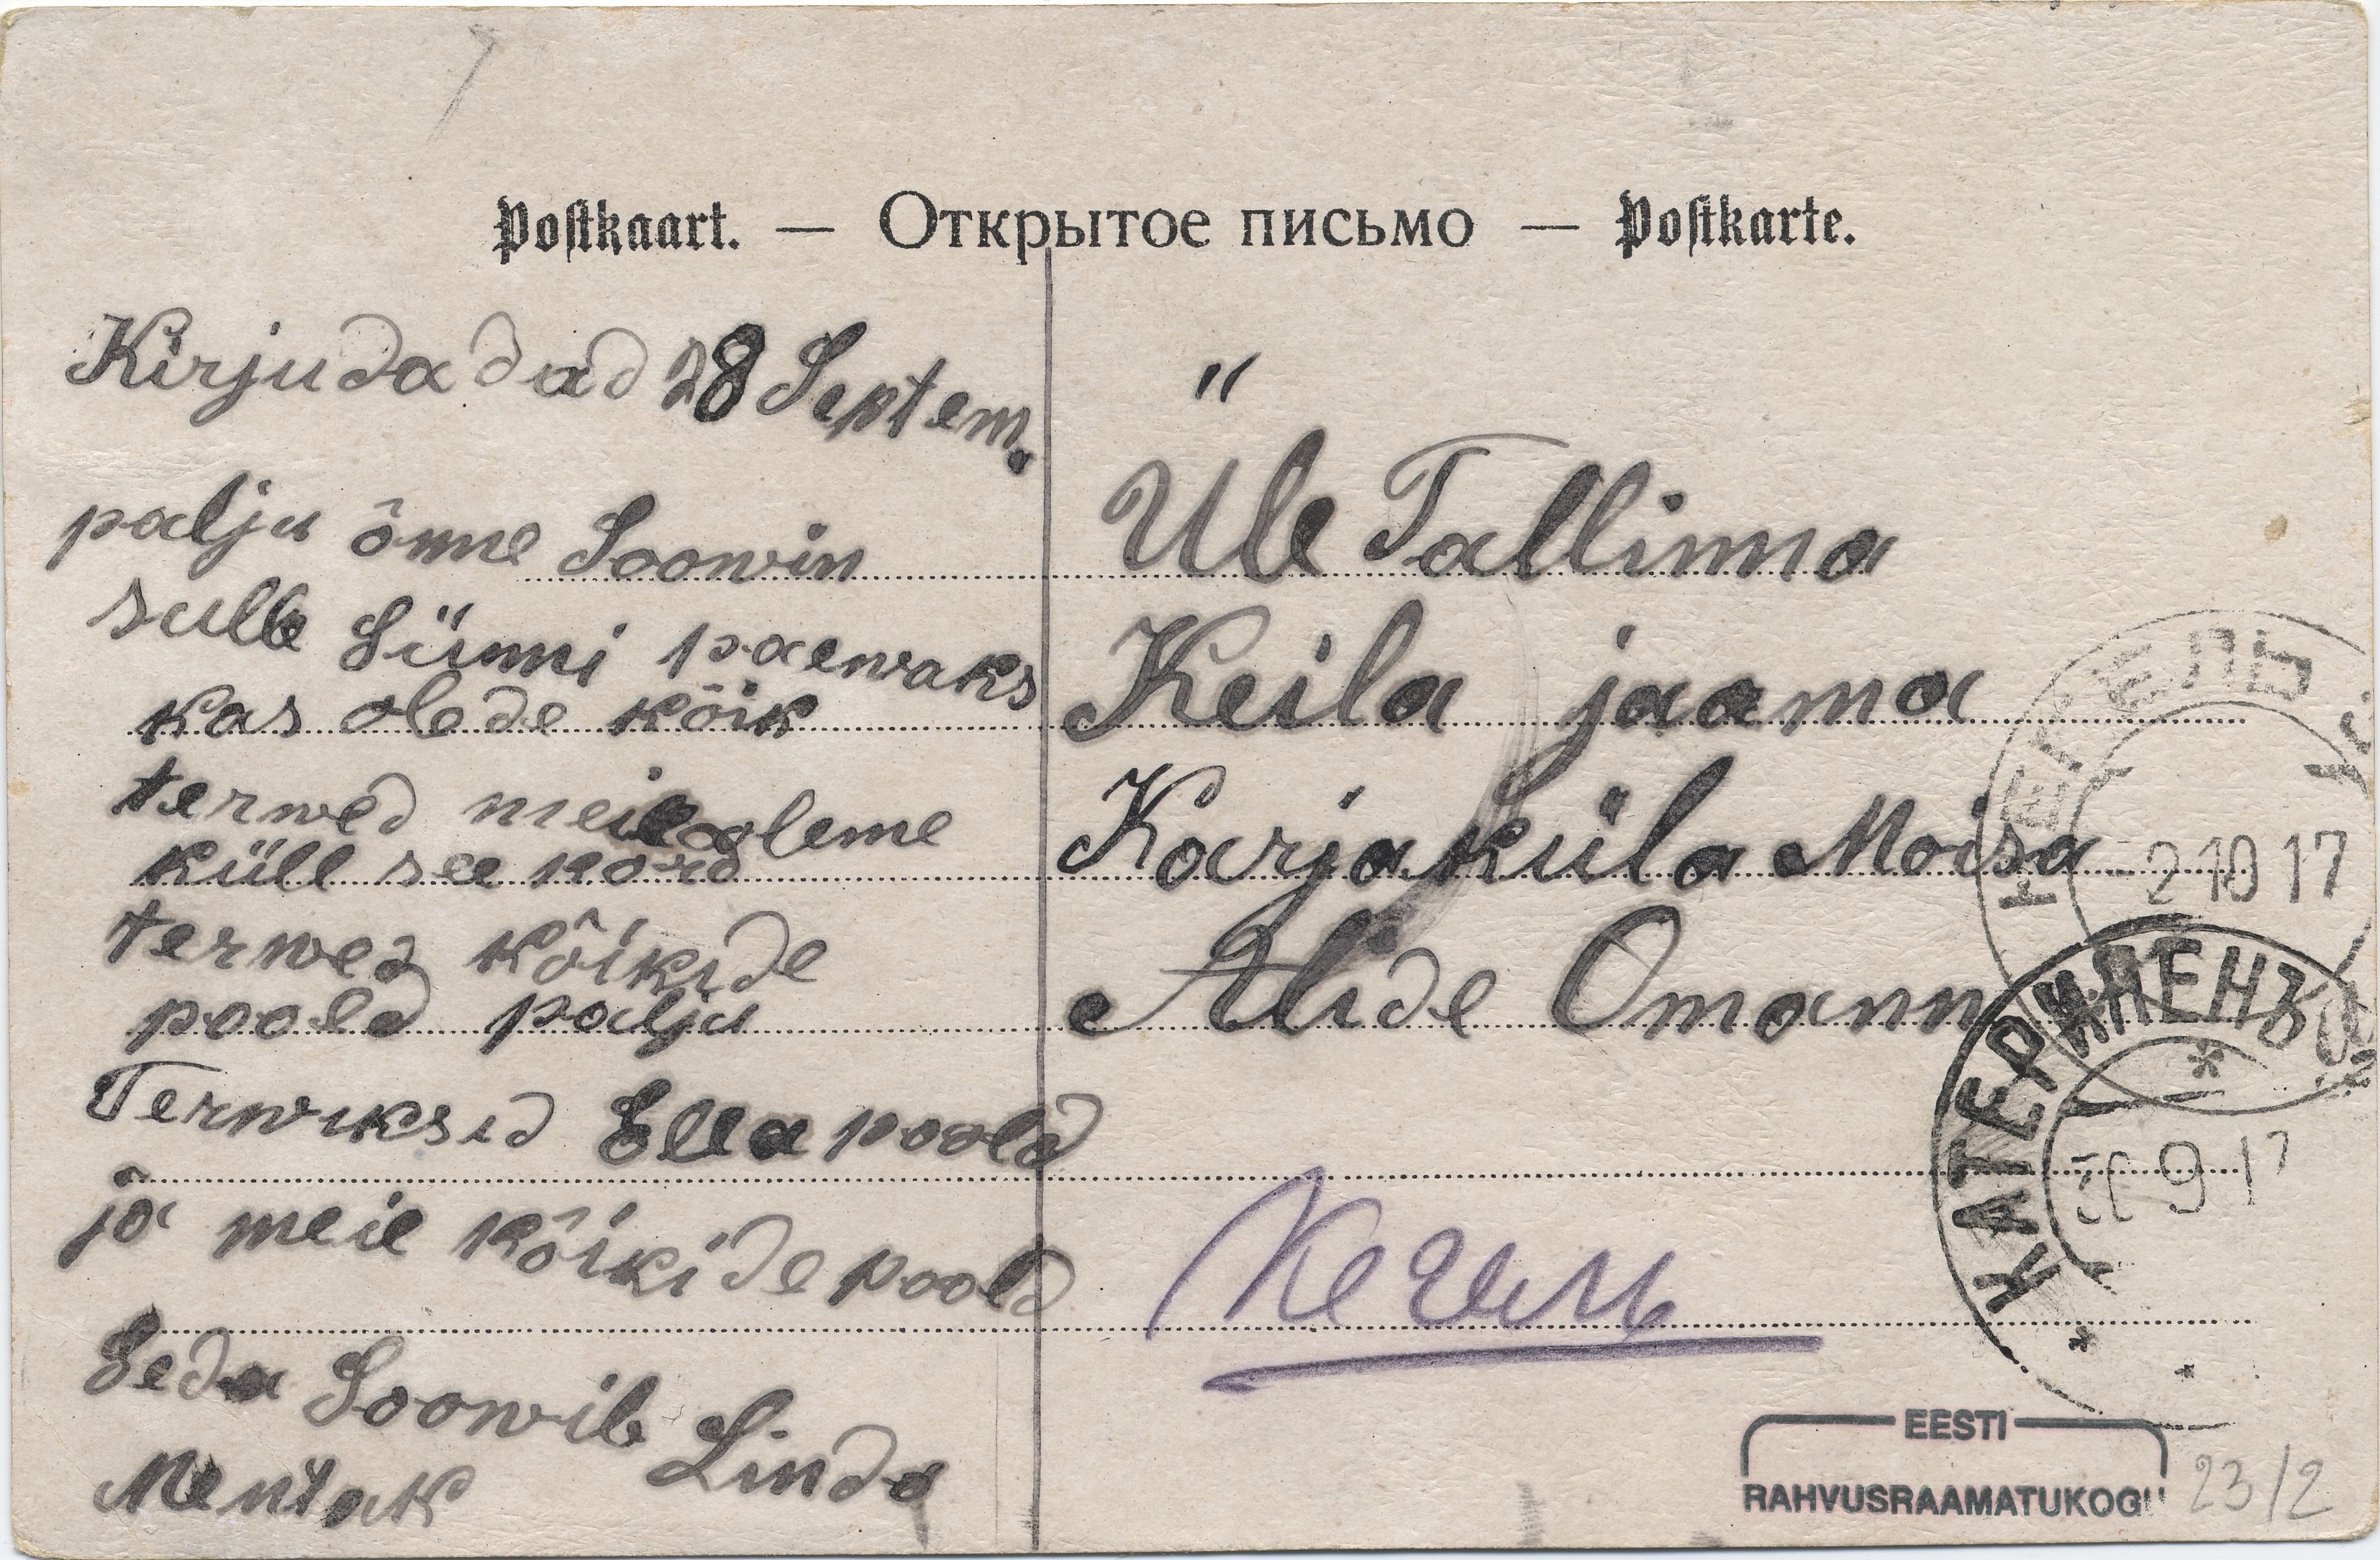 Postkaart. — Открытое письмо — Postkarte.
Kirjudadad 28 Septem.
palju õnne Soowin
sulle Sünni paewaks
kas olede kõik
terwed meie oleme
küll see kord
terwed kõikide
poold palju
Terwiksid Ella poold
ja meie kõikide poold
Seda Soowib Linda
Mentak
"
Ule Tallinna
Keila jaama
Karjaküla Moisa
Alide Omann
Кегель
КЕГЕЛЬ
2 10 17
КАТЕРИНЕНЪ
30 9 17
EESTI
RAHVUSRAAMATUKOGU
23/2